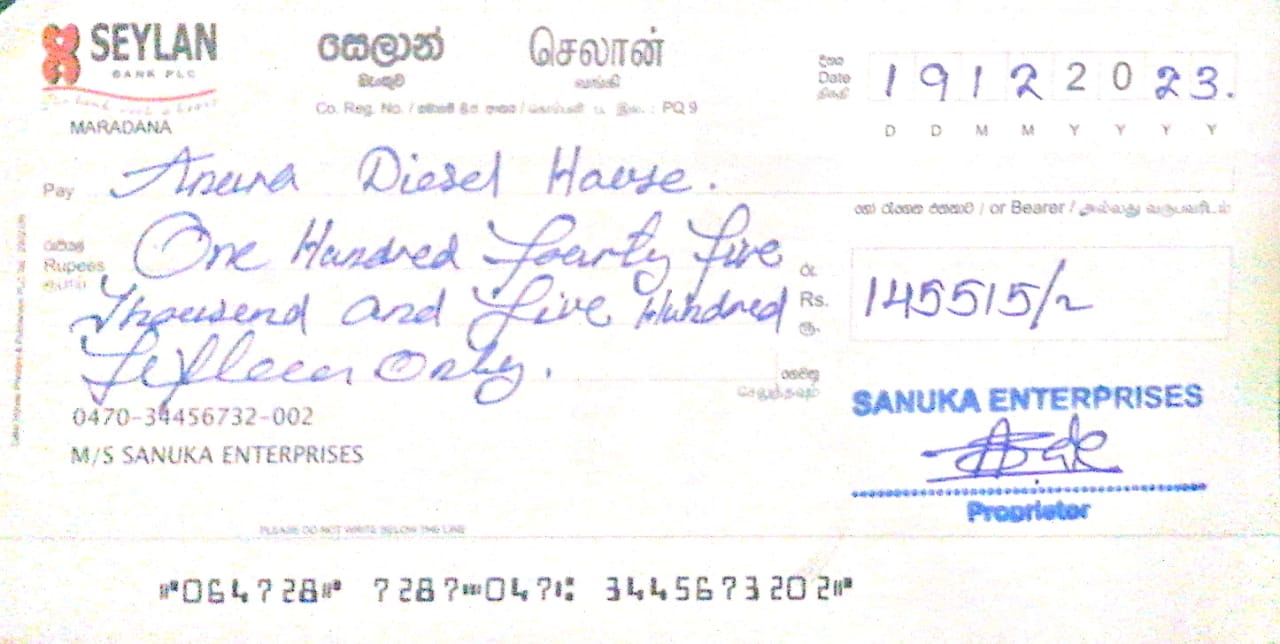 SEYLAN
BANK PLC
සෙලාන් செலான்
බැංකුව வங்கி
Co. Reg. No. / PQ 9
MARADANA
දිනය
Date
திகதி
1 9 1 2 2 0 2 3.
D D M M Y Y Y Y
Pay Anura Diesel House.
හෝ රැගෙන එනතාට / or Bearer / அல்லது வருபவரிடம்
රුපියල්
Rupees
ரூபாய்
One Hundred Fourty Five
Thousand and Five Hundred
Fifteen Only.
රු
Rs. 145515/=
ரூ.
ගෙවනු
செலுத்தவும்
0470-34456732-002
M/S SANUKA ENTERPRISES
SANUKA ENTERPRISES
Proprietor
PLEASE DO NOT WRITE BELOW THIS LINE
⑈064728⑈ 7287⑉047⑆ 3445673202⑈